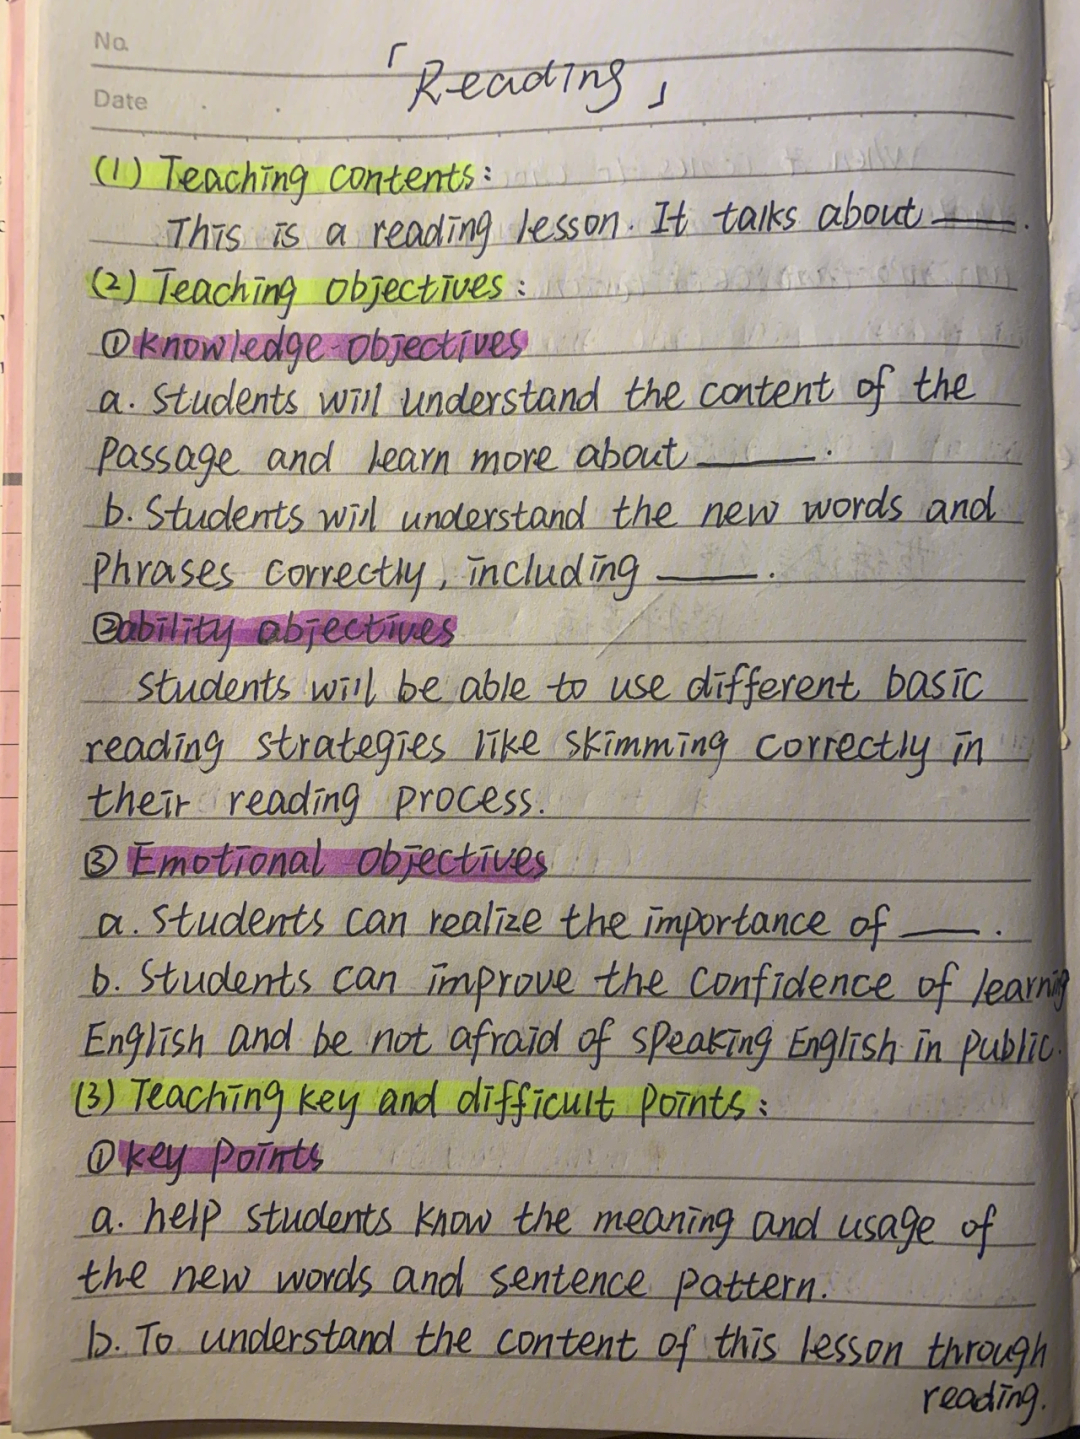 No.
「Reading」
Date
(1) Teaching contents:
This is a reading lesson. It talks about ____.
(2) Teaching objectives:
① knowledge objectives
a. Students will understand the content of the
passage and learn more about ____.
b. Students will understand the new words and
phrases correctly, including ____.
② ability abjectives
students will be able to use different basic
reading strategies like skimming correctly in
their reading process.
③ Emotional objectives
a. Students can realize the importance of ____.
b. Students can improve the confidence of learning
English and be not afraid of speaking English in public.
(3) Teaching key and difficult points:
① key points
a. help students know the meaning and usage of
the new words and sentence pattern.
b. To understand the content of this lesson through
reading.